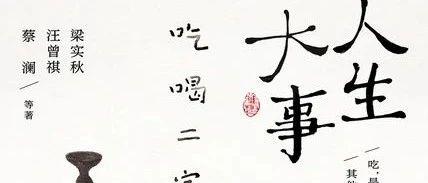 人生
大事
吃，是
其
吃喝二字
梁实秋
汪曾祺
蔡澜
等著